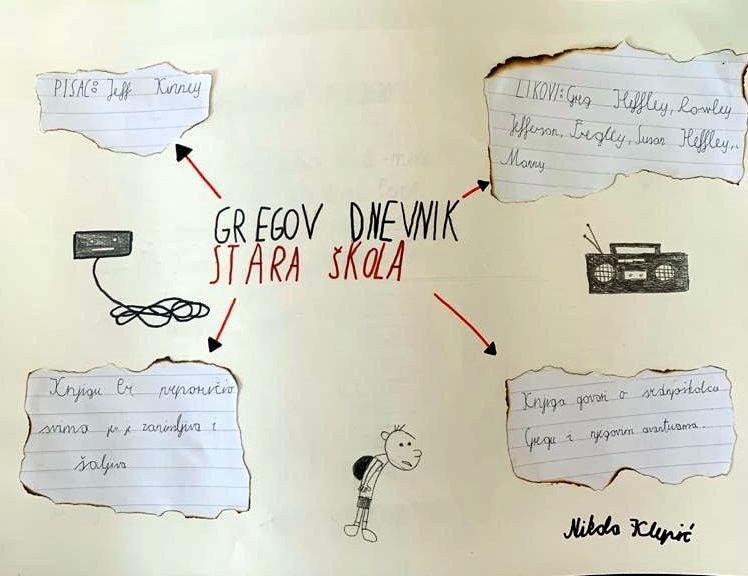 PISAC: Jeff Kinney
LIKOVI: Greg Heffley, Rowley
Jefferson, Fregley, Susan Heffley,
Manny
GREGOV DNEVNIK
STARA ŠKOLA
Knjigu bi preporučio
svima jer je zanimljiva i
šaljiva
Knjiga govori o srednjoškolcu
Gregu i njegovim avanturama.
Nikola Klepić